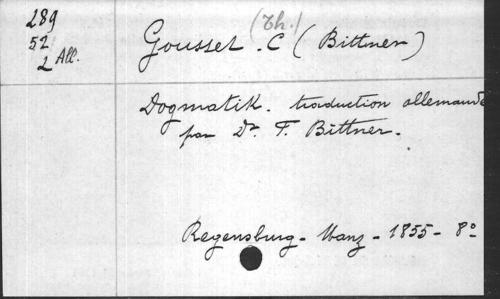 289
52
2 All.
(Th.)
Gousset. C (Bittner)
Dogmatik. traduction allemande
par Dr. F. Bittner.
Regensburg - Manz - 1855 - 8°